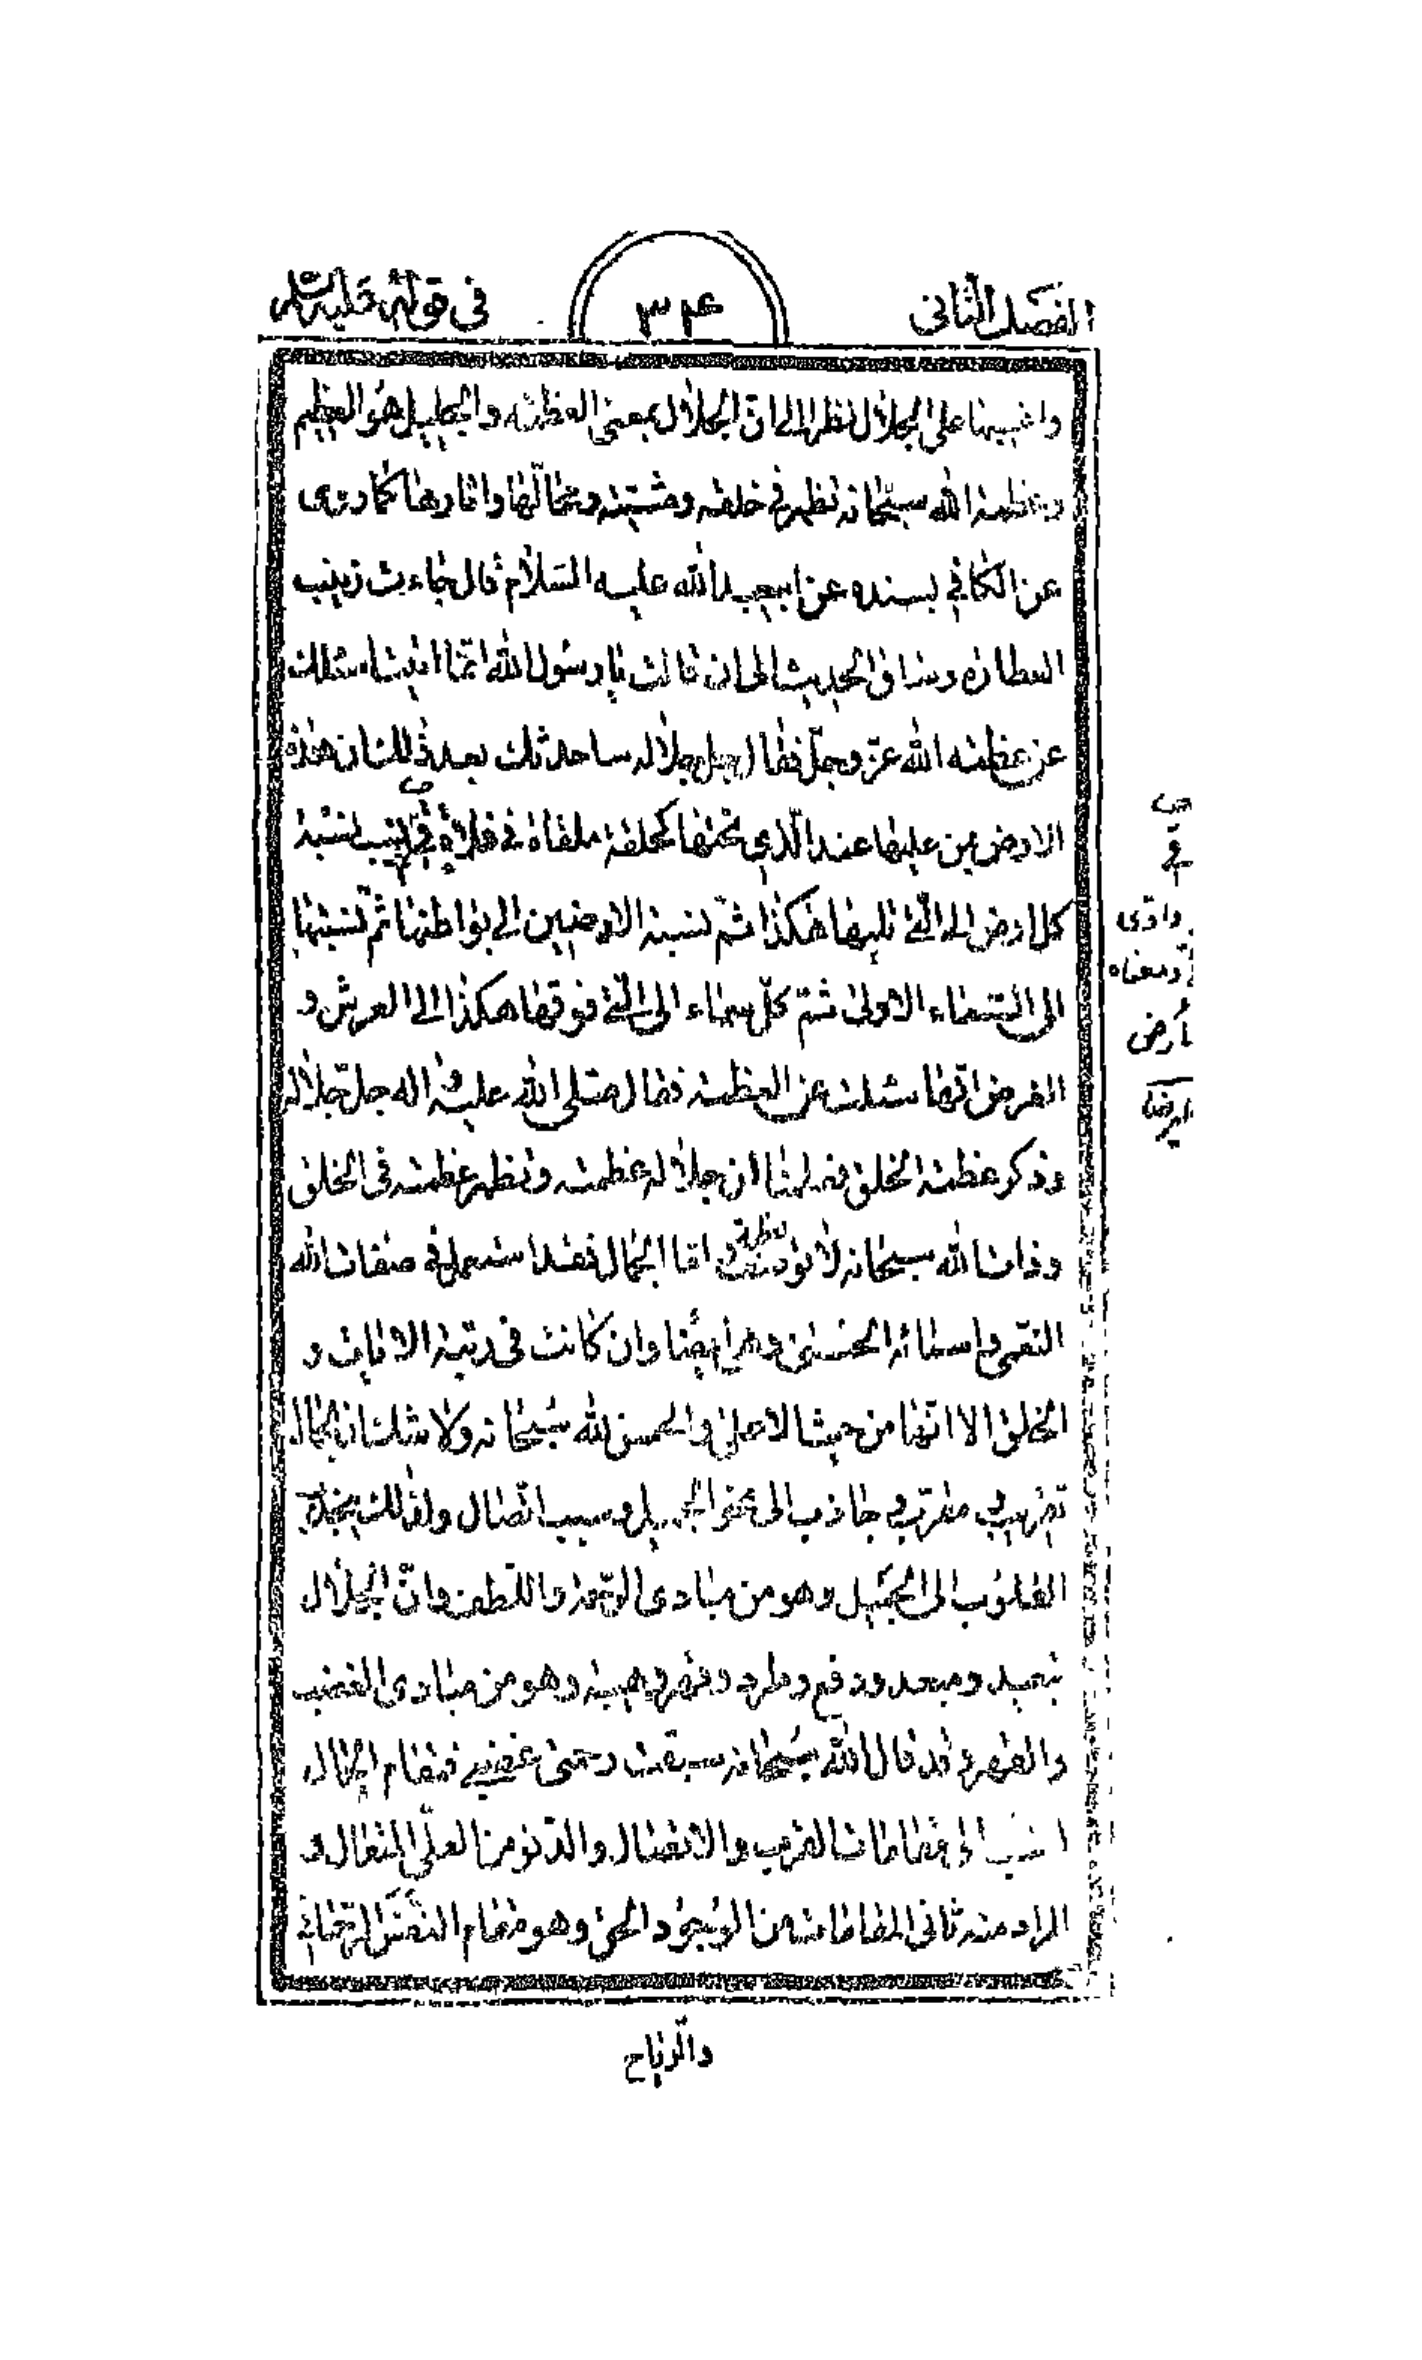 الفصل الثانى
٣۴
فى قوله عليه السلام
على الجلال نظرا الى ان الجلال بمعنى العظمة والجليل هو العظيم
وعظمة الله سبحانه تظهر فى خلقه ومشيته ومحالها واثارها كما روى
عن الكافى بسنده عن ابيعبد الله عليه السلام قال جاءت زينب
العطارة وساق الحديث الى ان قالت يا رسول الله انما اتيت اسئلك
عن عظمة الله عز وجل فقال جل جلاله ساحدثك بعد ذلك ان هذه
الارض بمن عليها عند الذى تحتها كحلقة ملقاة فى فلاة قى نسبة
كل ارض الى التى تليها هكذا ثم نسبة الارضين الى بواطنها ثم نسبتها
الى السماء الاولى ثم كل سماء الى التى فوقها هكذا الى العرش و
الغرض انها سئلت عن العظمة فقال صلى الله عليه و اله جل جلاله
وذكر عظمة الخلق فعلمنا ان جلاله عظمته وتظهر عظمته فى الخلق
وذات الله سبحانه لا و اما الجمال فقد استعمل فى صفات الله
و اسمائه الحسنى وهى ايضا وان كانت فى رتبة الايات و
الخلق الا انها من حيث الاعلى والحسن لله سبحانه ولا شك ان الجمال
تقريب و مقرب و جاذب الى نحو الجميل و سبب اتصال ولذلك ينجذب
القلوب الى الجميل وهو من مبادى الرحمة واللطف وان الجلال
تبعيد ومبعد ودفع وطرد وقهر وهيبة وهو من مبادى الغضب
والقهر و قد قال الله سبحانه سبقت رحمتى غضبى فمقام الجمال
انسب الى مقامات القرب والاتصال والدنو من العلى المتعال و
المراد منه ثانى المقامات من الوجود الحق وهو مقام النفس الرحمانى
والرياح
ص
فى
ومعناه
ارض